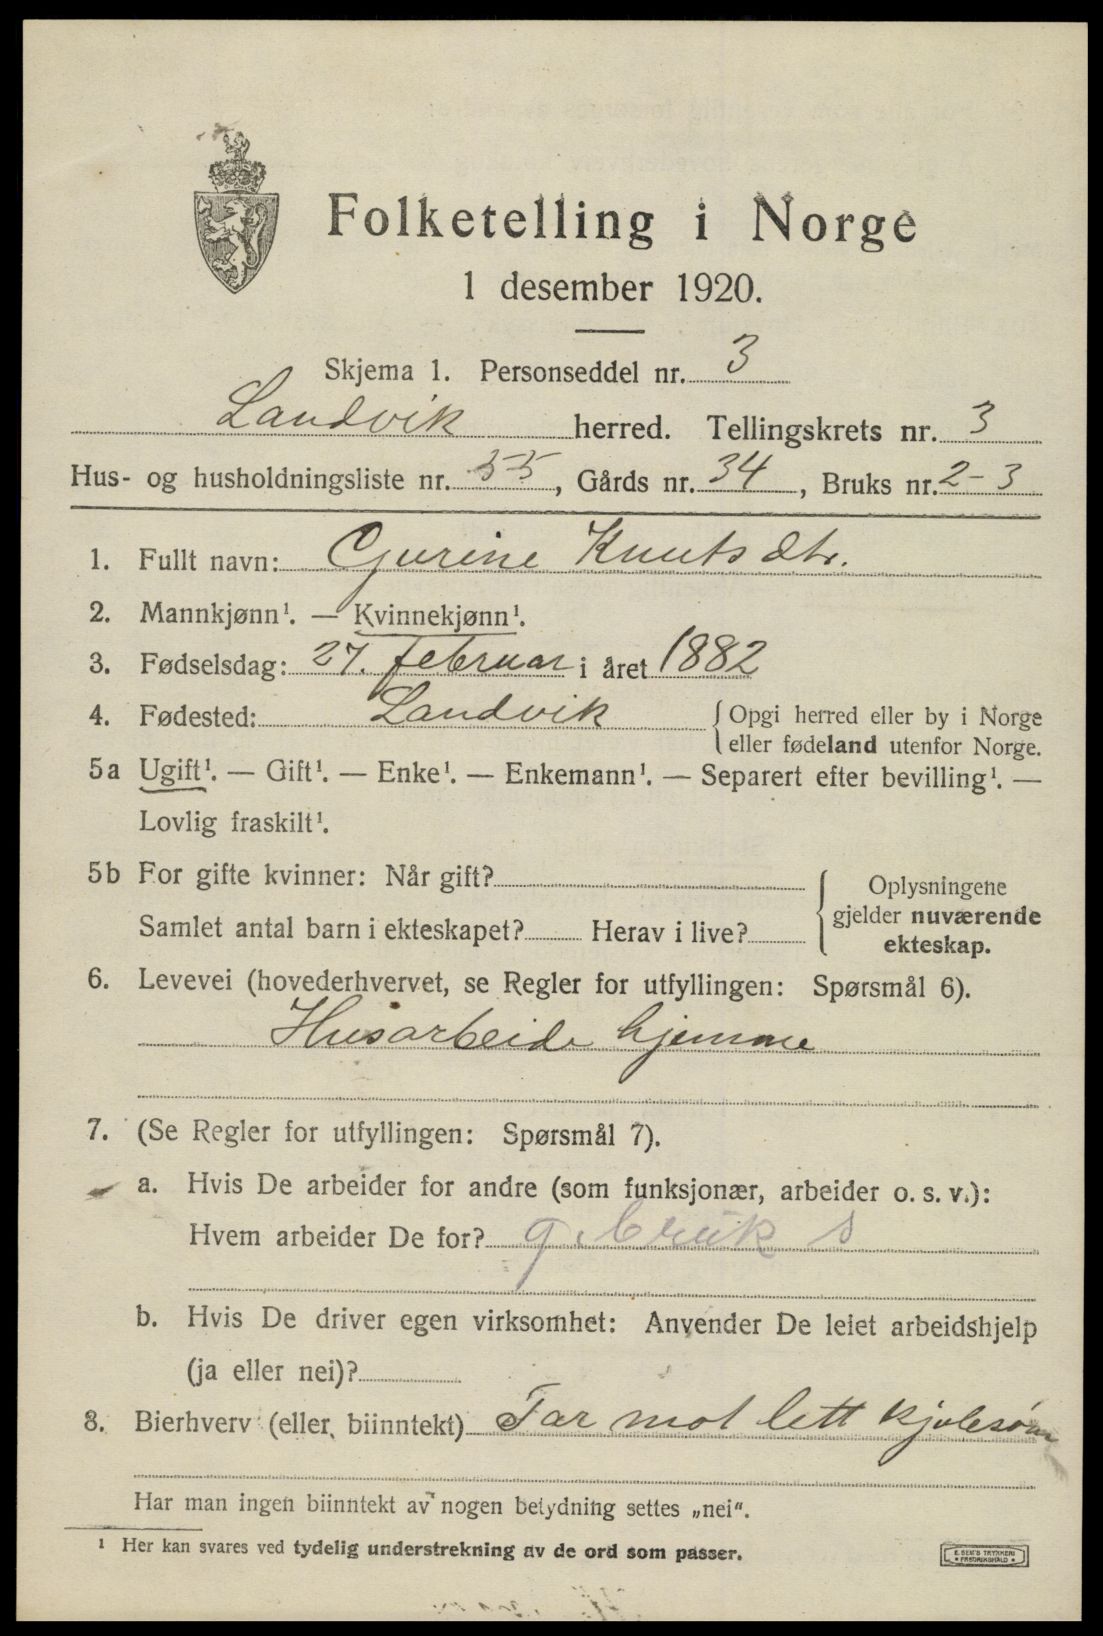 Folketelling i Norge
1 desember 1920.
Skjema 1. Personseddel nr. 3
Landvik herred. Tellingskrets nr. 3
Hus- og husholdningsliste nr. 55, Gårds nr. 34, Bruks nr. 2-3
1. Fullt navn: Gurine Knutsdtr.
2. Mannkjønn¹. — Kvinnekjønn¹.
3. Fødselsdag: 27. februar i året 1882
4. Fødested: Landvik { Opgi herred eller by i Norge
eller fødeland utenfor Norge.
5a Ugift¹. — Gift¹. — Enke¹. — Enkemann¹. — Separert efter bevilling¹. —
Lovlig fraskilt¹.
5b For gifte kvinner: Når gift?
Samlet antal barn i ekteskapet? Herav i live?
Oplysningene
gjelder nuværende
ekteskap.
6. Levevei (hovederhvervet, se Regler for utfyllingen: Spørsmål 6).
Husarbeide hjemme
7. (Se Regler for utfyllingen: Spørsmål 7).
a. Hvis De arbeider for andre (som funksjonær, arbeider o. s. v.):
Hvem arbeider De for? g.bruk s
b. Hvis De driver egen virksomhet: Anvender De leiet arbeidshjelp
(ja eller nei)?
8. Bierhverv (eller biinntekt) Tar mot lett kjolesøm
Har man ingen biinntekt av nogen betydning settes „nei“.
¹ Her kan svares ved tydelig understrekning av de ord som passer.
E. SEM'S TRYKKERI
FREDRIKSHALD